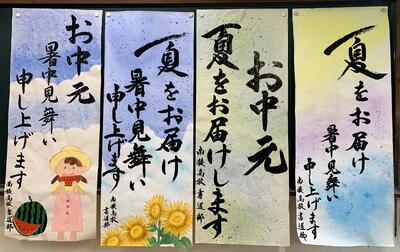 夏をお届け
暑中見舞い
申し上げます
南稜高校書道部
お中元
夏をお届けします
南稜高校書道部
夏をお届け
暑中見舞い
申し上げます
南稜高校書道部
お中元
暑中見舞い
申し上げます
南稜高校書道部